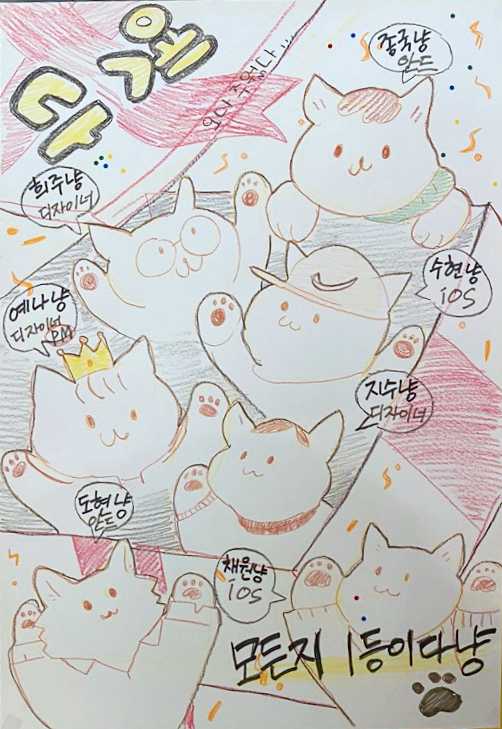 다웻
오다 주웠다...
종국냥
안드
희주냥
디자이너
수현냥
iOS
예나냥
디자이너
PM
지수냥
디자이너
도현냥
안드
채원냥
iOS
모든지 1등이다냥